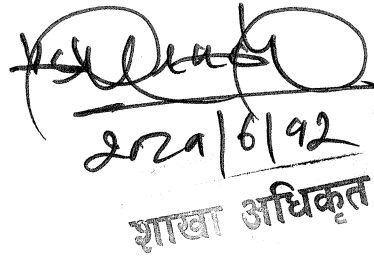 २०८१|६|१२
शाखा अधिकृत